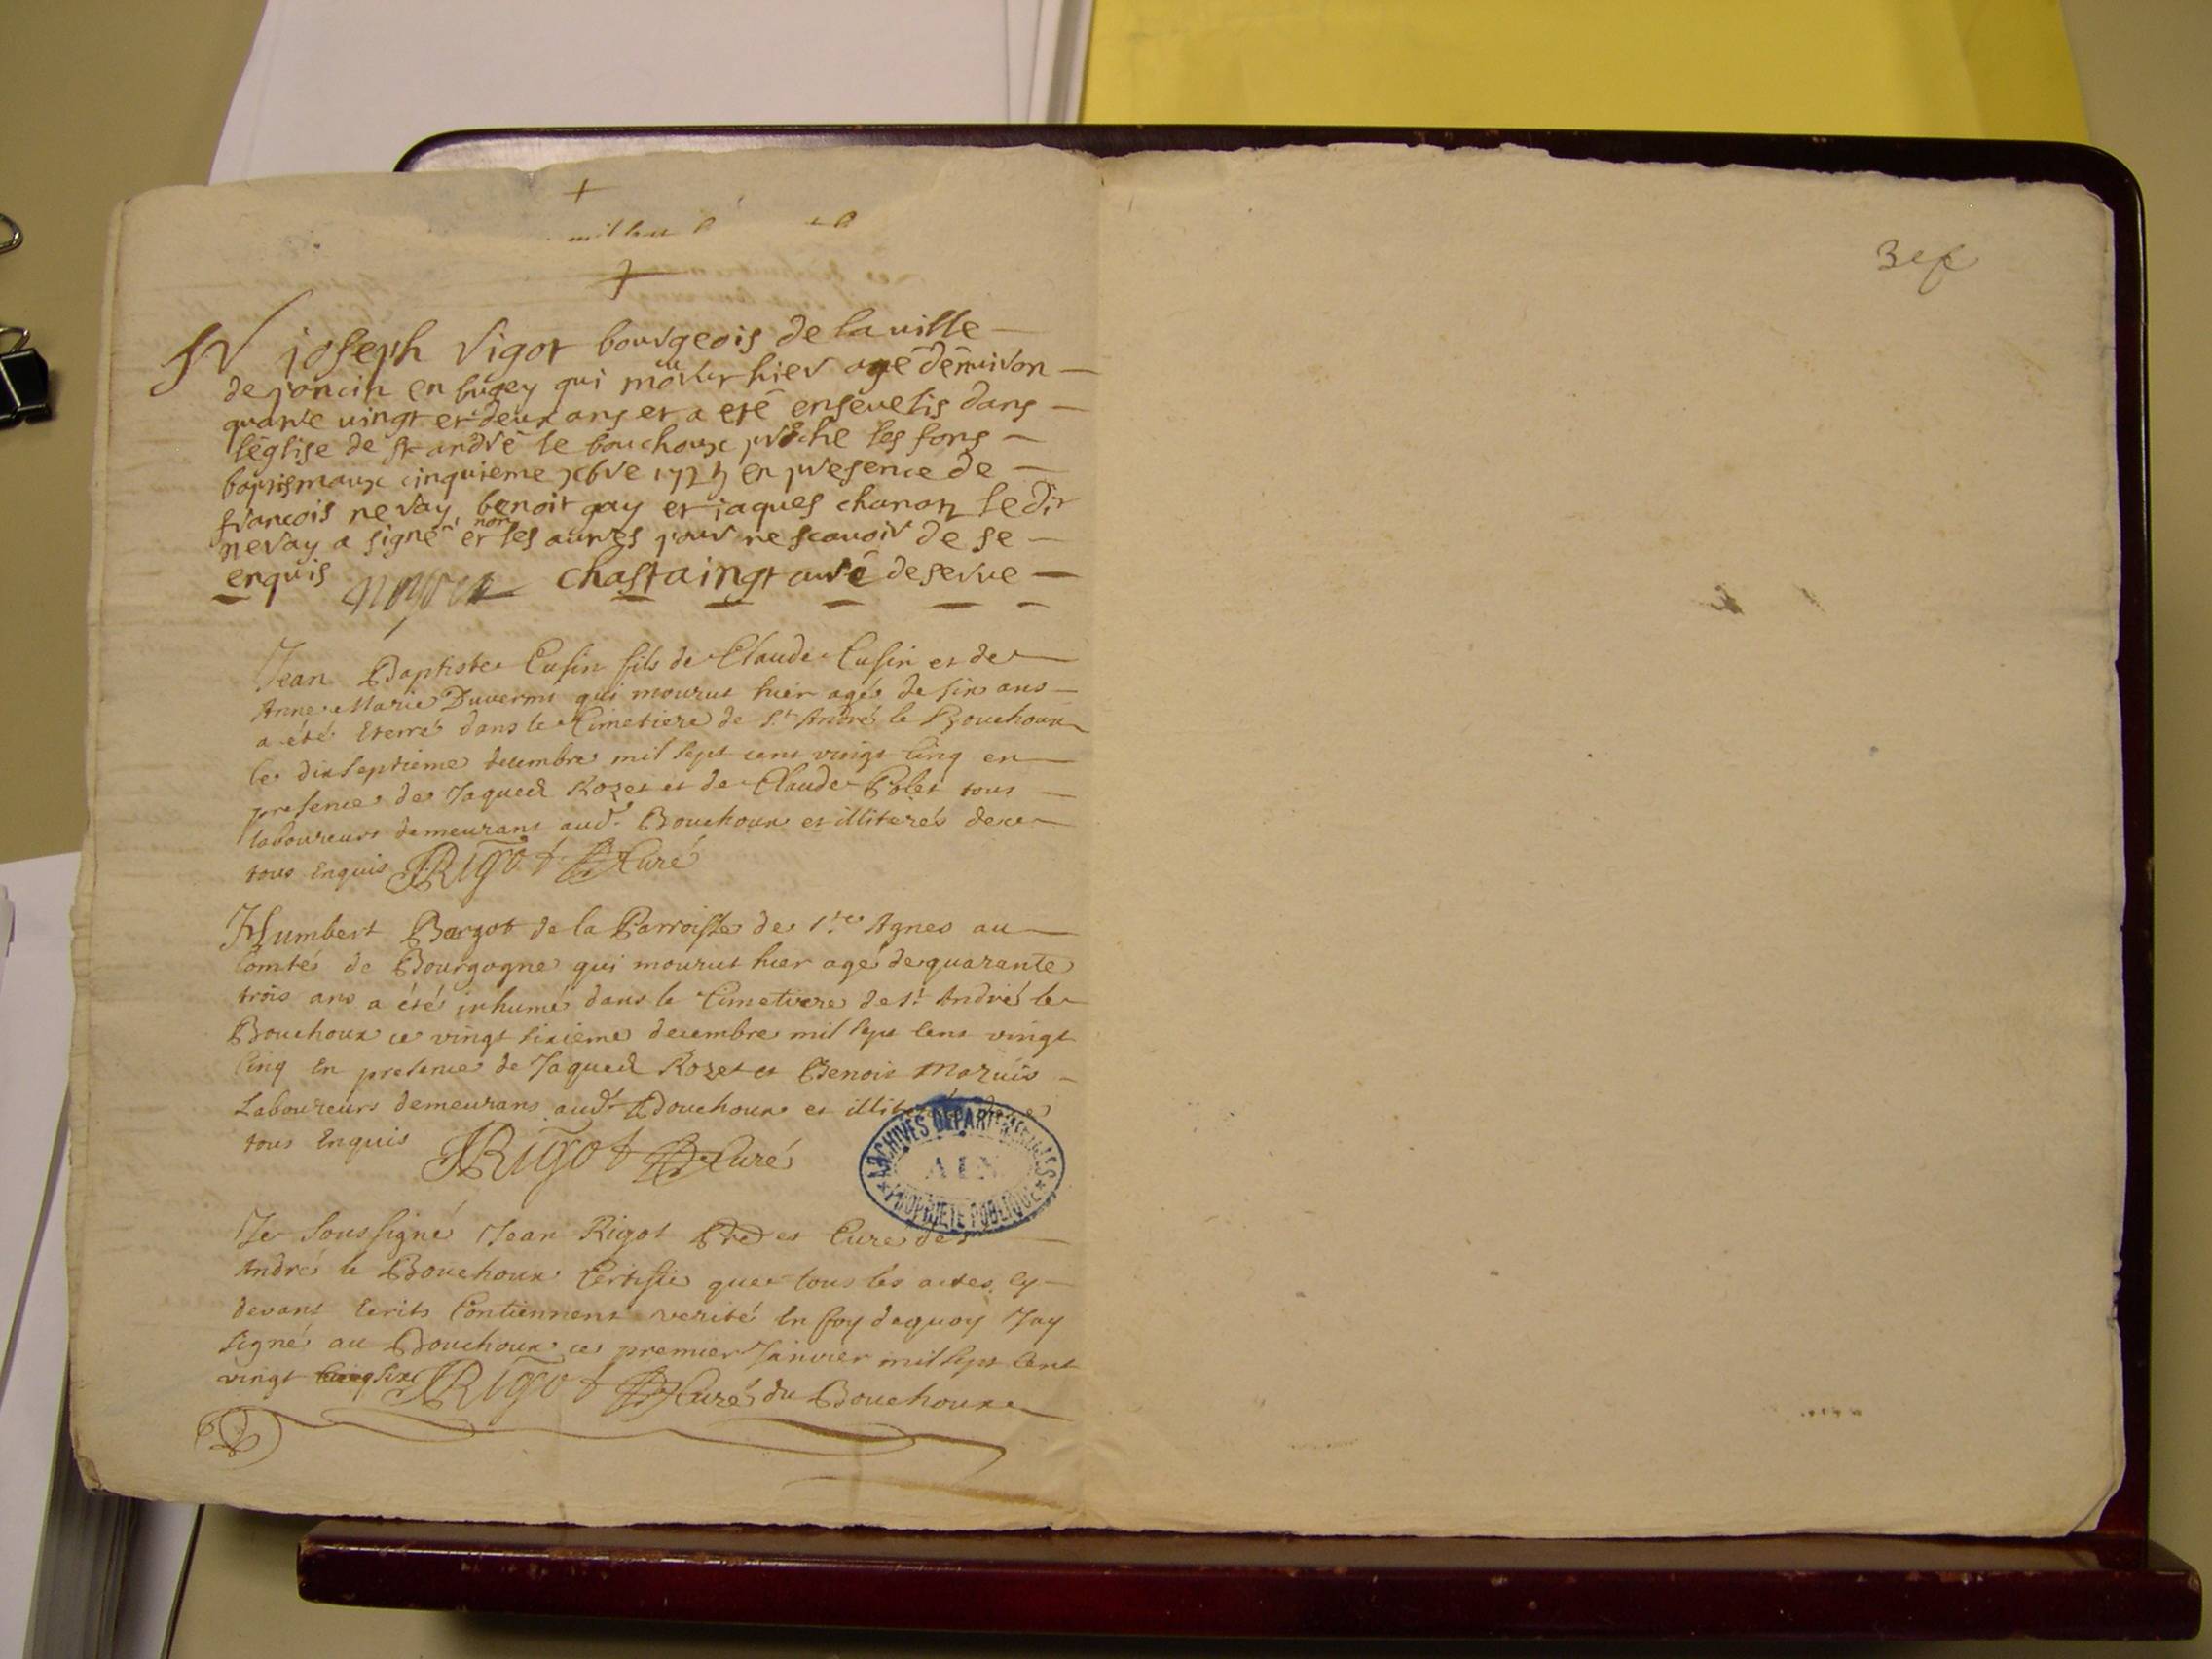 joseph Vigot bourgeois de la ville
de poncin en bugey qui mourut hier agé denuiron
quatre uingt et deux ans et a eté enseuelis dans
l'église de st andré le bouchoux proche les fons
baptismaux cinquieme xbre 1725 en presence de
francois neray benoit gay et jaques chanon le dit
neray a signé et non les autres pour ne scauoir de ce
enquis chastaingt curé deserue
Jean Baptiste Cusin fils de Claude Cusin et de
Anne Marie Duverni qui mourut hier agé de six ans
a été Eterré dans le Cimetiere de St André le Bouchoux
le dix septieme decembre mil sept cent vingt Cinq en
presence de Jaques Rozet et de Claude Polet tous
laboureurs demeurans aud. Bouchoux et illiterés de ce
tous Enquis JRigot Ptre Curé
Humbert Bargot de la Parroisse de Ste Agnes au
Comté de Bourgogne qui mourut hier agé de quarante
trois ans a été inhumé dans le Cimetiere de St André le
Bouchoux ce vingt sixieme decembre mil sept cent vingt
Cinq En presence de Jaques Rozet et Benois Mazuis
Laboureurs demeurans audt Bouchoux et
tous Enquis JRigot Ptre Curé
ARCHIVES DEPARTEMENTALES
AIN
PROPRIETE PUBLIQUE
Je Soussigné Jean Rigot Ptre et Curé de St
André le Bouchoux Certifie que tous les actes cy
devant Ecrits Contiennent verité En foy dequoy J'ay
signé au Bouchoux ce premier Janvier mil sept cent
vingt six JRigot Ptre Curé du Bouchoux